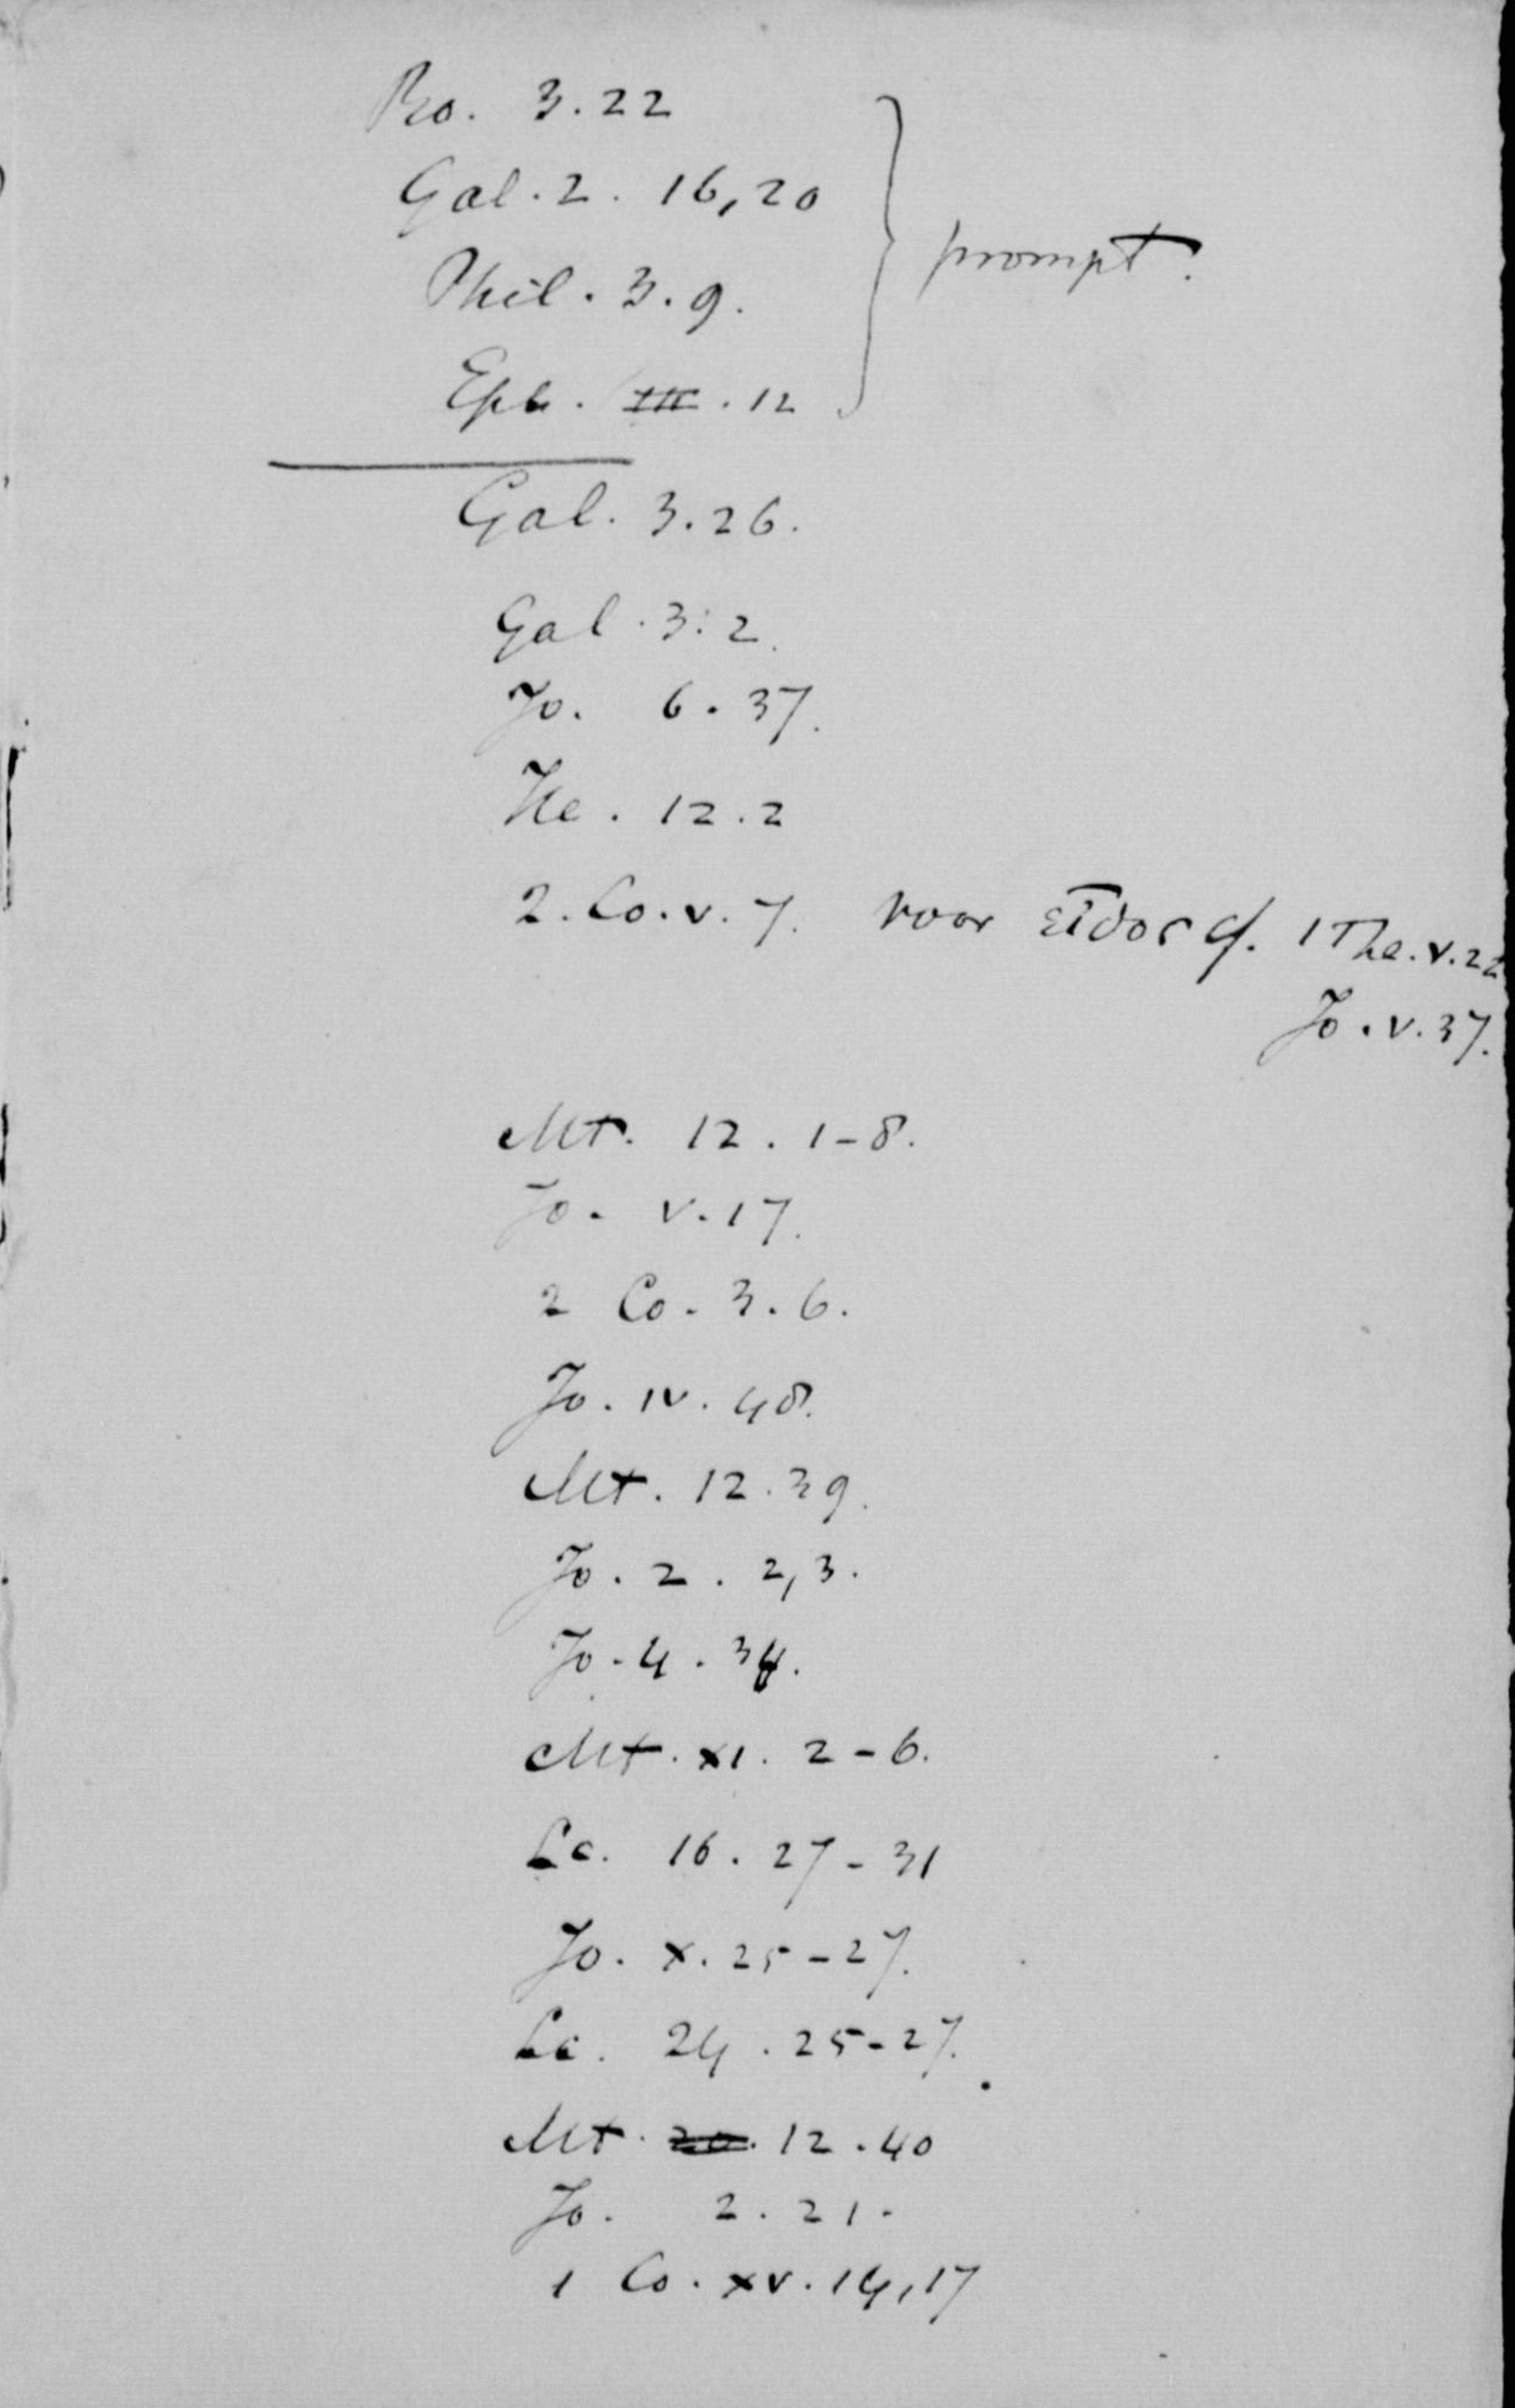 Ro. 3.22
Gal. 2. 16,20
Phil. 3.9.
Eph. III. 12
prompt.
Gal. 3.26.
Gal. 3:2.
Jo. 6.37.
He. 12.2
2. Co. v. 7. voor εἶδος cf. 1 The. v. 22
Jo. v. 37.
Mt. 12. 1-8.
Jo. v. 17.
2 Co. 3.6.
Jo. IV. 48.
Mt. 12.39.
Jo. 2. 2,3.
Jo. 4. 34.
Mt. XI. 2-6.
Lc. 16. 27-31
Jo. X. 25-27.
Lc. 24. 25-27.
Mt. 20. 12.40
Jo. 2.21.
1 Co. XV. 14,17